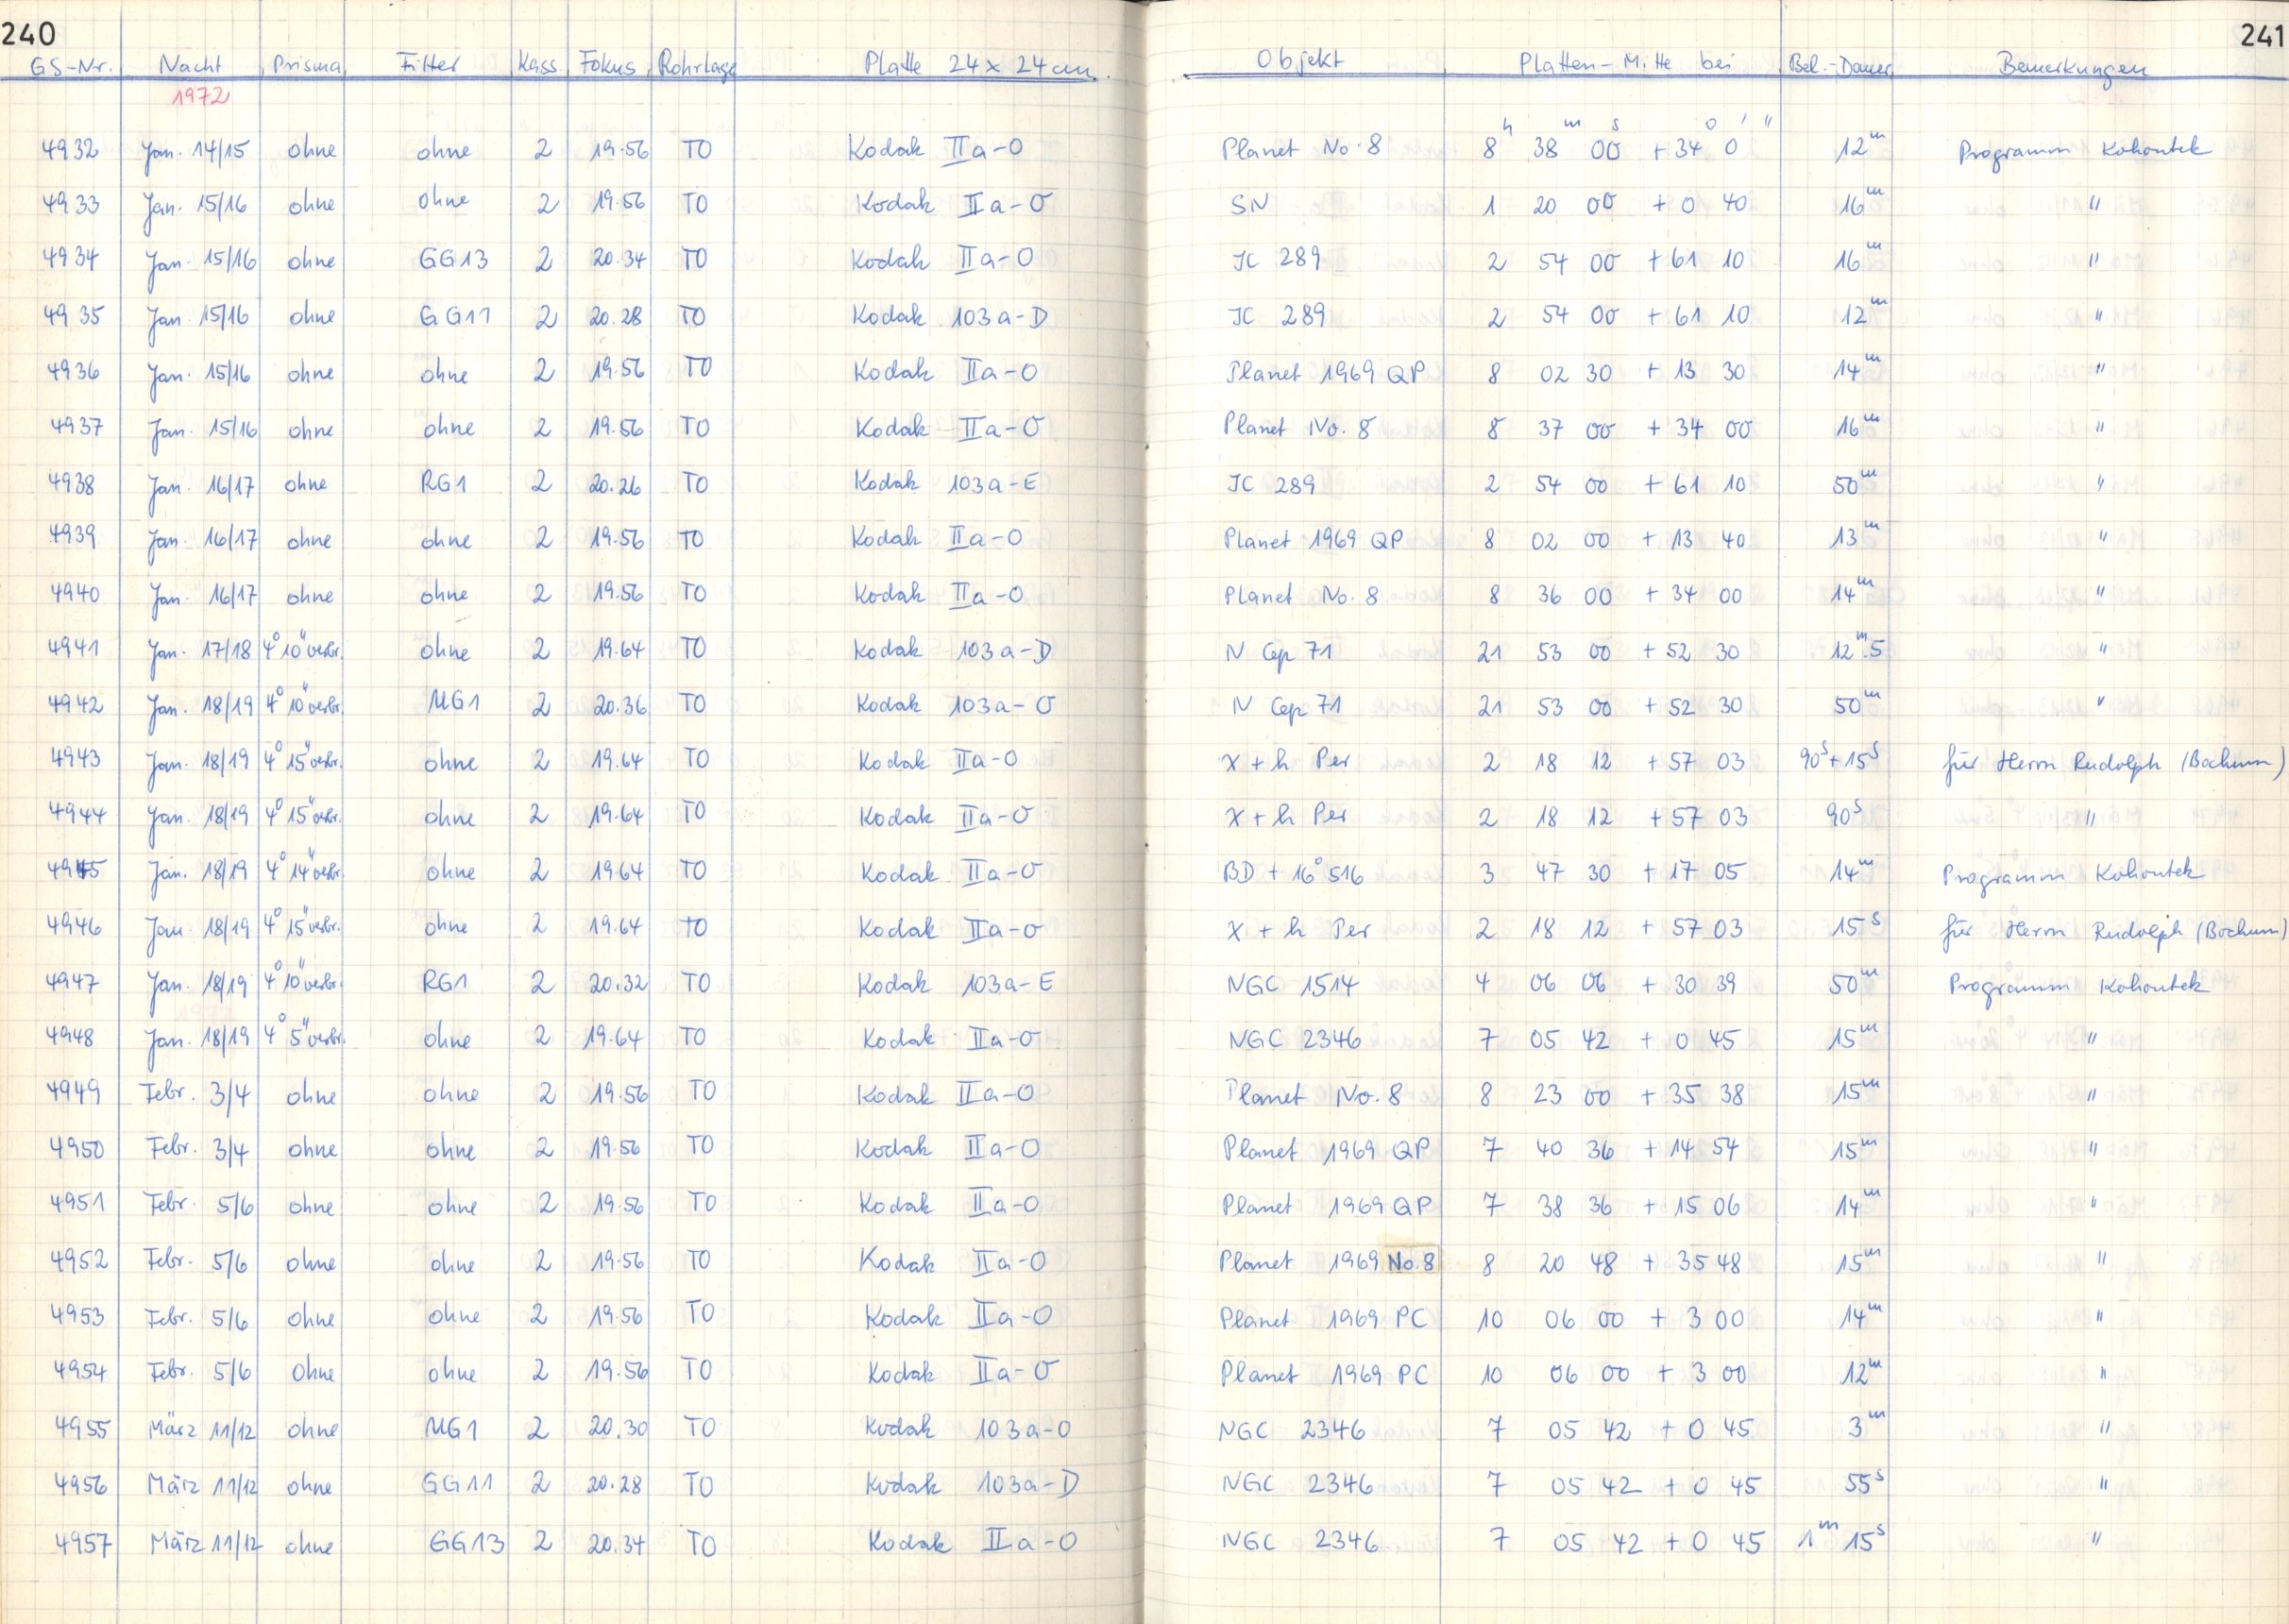 240
241
GS-Nr. Nacht Prisma Filter Kass. Fokus Rohrlage Platte 24 x 24 cm. Objekt Platten-Mitte bei Bel.-Dauer Bemerkungen
1972
h m s ° ' "
4932 Jan. 14/15 ohne ohne 2 19.56 TO Kodak IIa-O Planet No. 8 8 38 00 + 34 0 12m Programm Kohoutek
4933 Jan. 15/16 ohne ohne 2 19.56 TO Kodak IIa-O SN 1 20 00 + 0 40 16m "
4934 Jan. 15/16 ohne GG13 2 20.34 TO Kodak IIa-O JC 289 2 54 00 + 61 10 16m "
4935 Jan. 15/16 ohne GG11 2 20.28 TO Kodak 103a-D JC 289 2 54 00 + 61 10 12m "
4936 Jan. 15/16 ohne ohne 2 19.56 TO Kodak IIa-O Planet 1969 QP 8 02 30 + 13 30 14m "
4937 Jan. 15/16 ohne ohne 2 19.56 TO Kodak IIa-O Planet No. 8 8 37 00 + 34 00 16m "
4938 Jan. 16/17 ohne RG1 2 20.26 TO Kodak 103a-E JC 289 2 54 00 + 61 10 50m "
4939 Jan. 16/17 ohne ohne 2 19.56 TO Kodak IIa-O Planet 1969 QP 8 02 00 + 13 40 13m "
4940 Jan. 16/17 ohne ohne 2 19.56 TO Kodak IIa-O Planet No. 8 8 36 00 + 34 00 14m "
4941 Jan. 17/18 4° 10" verbr. ohne 2 19.64 TO Kodak 103a-D N Cep 71 21 53 00 + 52 30 12m.5 "
4942 Jan. 18/19 4° 10" verbr. UG1 2 20.36 TO Kodak 103a-O N Cep 71 21 53 00 + 52 30 50m "
4943 Jan. 18/19 4° 15" verbr. ohne 2 19.64 TO Kodak IIa-O χ + h Per 2 18 12 + 57 03 90s + 15s für Herrn Rudolph (Bochum)
4944 Jan. 18/19 4° 15" verbr. ohne 2 19.64 TO Kodak IIa-O χ + h Per 2 18 12 + 57 03 90s "
4945 Jan. 18/19 4° 14" verbr. ohne 2 19.64 TO Kodak IIa-O BD + 16° 516 3 47 30 + 17 05 14m Programm Kohoutek
4946 Jan. 18/19 4° 15" verbr. ohne 2 19.64 TO Kodak IIa-O χ + h Per 2 18 12 + 57 03 15s für Herrn Rudolph (Bochum)
4947 Jan. 18/19 4° 10" verbr. RG1 2 20.32 TO Kodak 103a-E NGC 1514 4 06 06 + 30 39 50m Programm Kohoutek
4948 Jan. 18/19 4° 5" verbr. ohne 2 19.64 TO Kodak IIa-O NGC 2346 7 05 42 + 0 45 15m "
4949 Febr. 3/4 ohne ohne 2 19.56 TO Kodak IIa-O Planet No. 8 8 23 00 + 35 38 15m "
4950 Febr. 3/4 ohne ohne 2 19.56 TO Kodak IIa-O Planet 1969 QP 7 40 36 + 14 54 15m "
4951 Febr. 5/6 ohne ohne 2 19.56 TO Kodak IIa-O Planet 1969 QP 7 38 36 + 15 06 14m "
4952 Febr. 5/6 ohne ohne 2 19.56 TO Kodak IIa-O Planet 1969 No. 8 8 20 48 + 35 48 15m "
4953 Febr. 5/6 ohne ohne 2 19.56 TO Kodak IIa-O Planet 1969 PC 10 06 00 + 3 00 14m "
4954 Febr. 5/6 ohne ohne 2 19.56 TO Kodak IIa-O Planet 1969 PC 10 06 00 + 3 00 12m "
4955 März 11/12 ohne UG1 2 20.30 TO Kodak 103a-O NGC 2346 7 05 42 + 0 45 3m "
4956 März 11/12 ohne GG11 2 20.28 TO Kodak 103a-D NGC 2346 7 05 42 + 0 45 55s "
4957 März 11/12 ohne GG13 2 20.34 TO Kodak IIa-O NGC 2346 7 05 42 + 0 45 1m 15s "